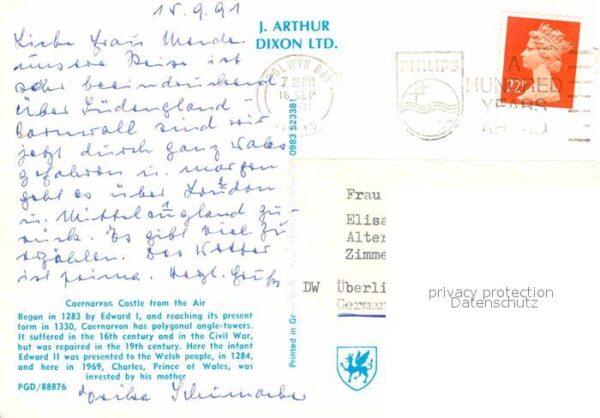 15.9.91
Liebe Frau Mende
unsere Reise ist
sehr beeindruckend
über Südengland -
Cornwall sind wir
jetzt durch ganz Wales
gefahren u. morgen
geht es über London
u. Mittelengland zu-
rück. Es gibt viel zu
erzählen. Das Wetter
ist prima. Herzl. Gruß
Schumacher
J. ARTHUR
DIXON LTD.
COLWYN BAY
7 PM
16 SEP
PHILIPS
A
HUNDRED
YEARS
AHEAD
22P
Printed in Gr
0983 523381
Frau
Elisa
Alter
Zimme
DW Überli
German
privacy protection
Datenschutz
Caernarvon Castle from the Air
Begun in 1283 by Edward I, and reaching its present
form in 1330, Caernarvon has polygonal angle-towers.
It suffered in the 16th century and in the Civil War,
but was repaired in the 19th century. Here the infant
Edward II was presented to the Welsh people, in 1284,
and here in 1969, Charles, Prince of Wales, was
invested by his mother
PGD/88876